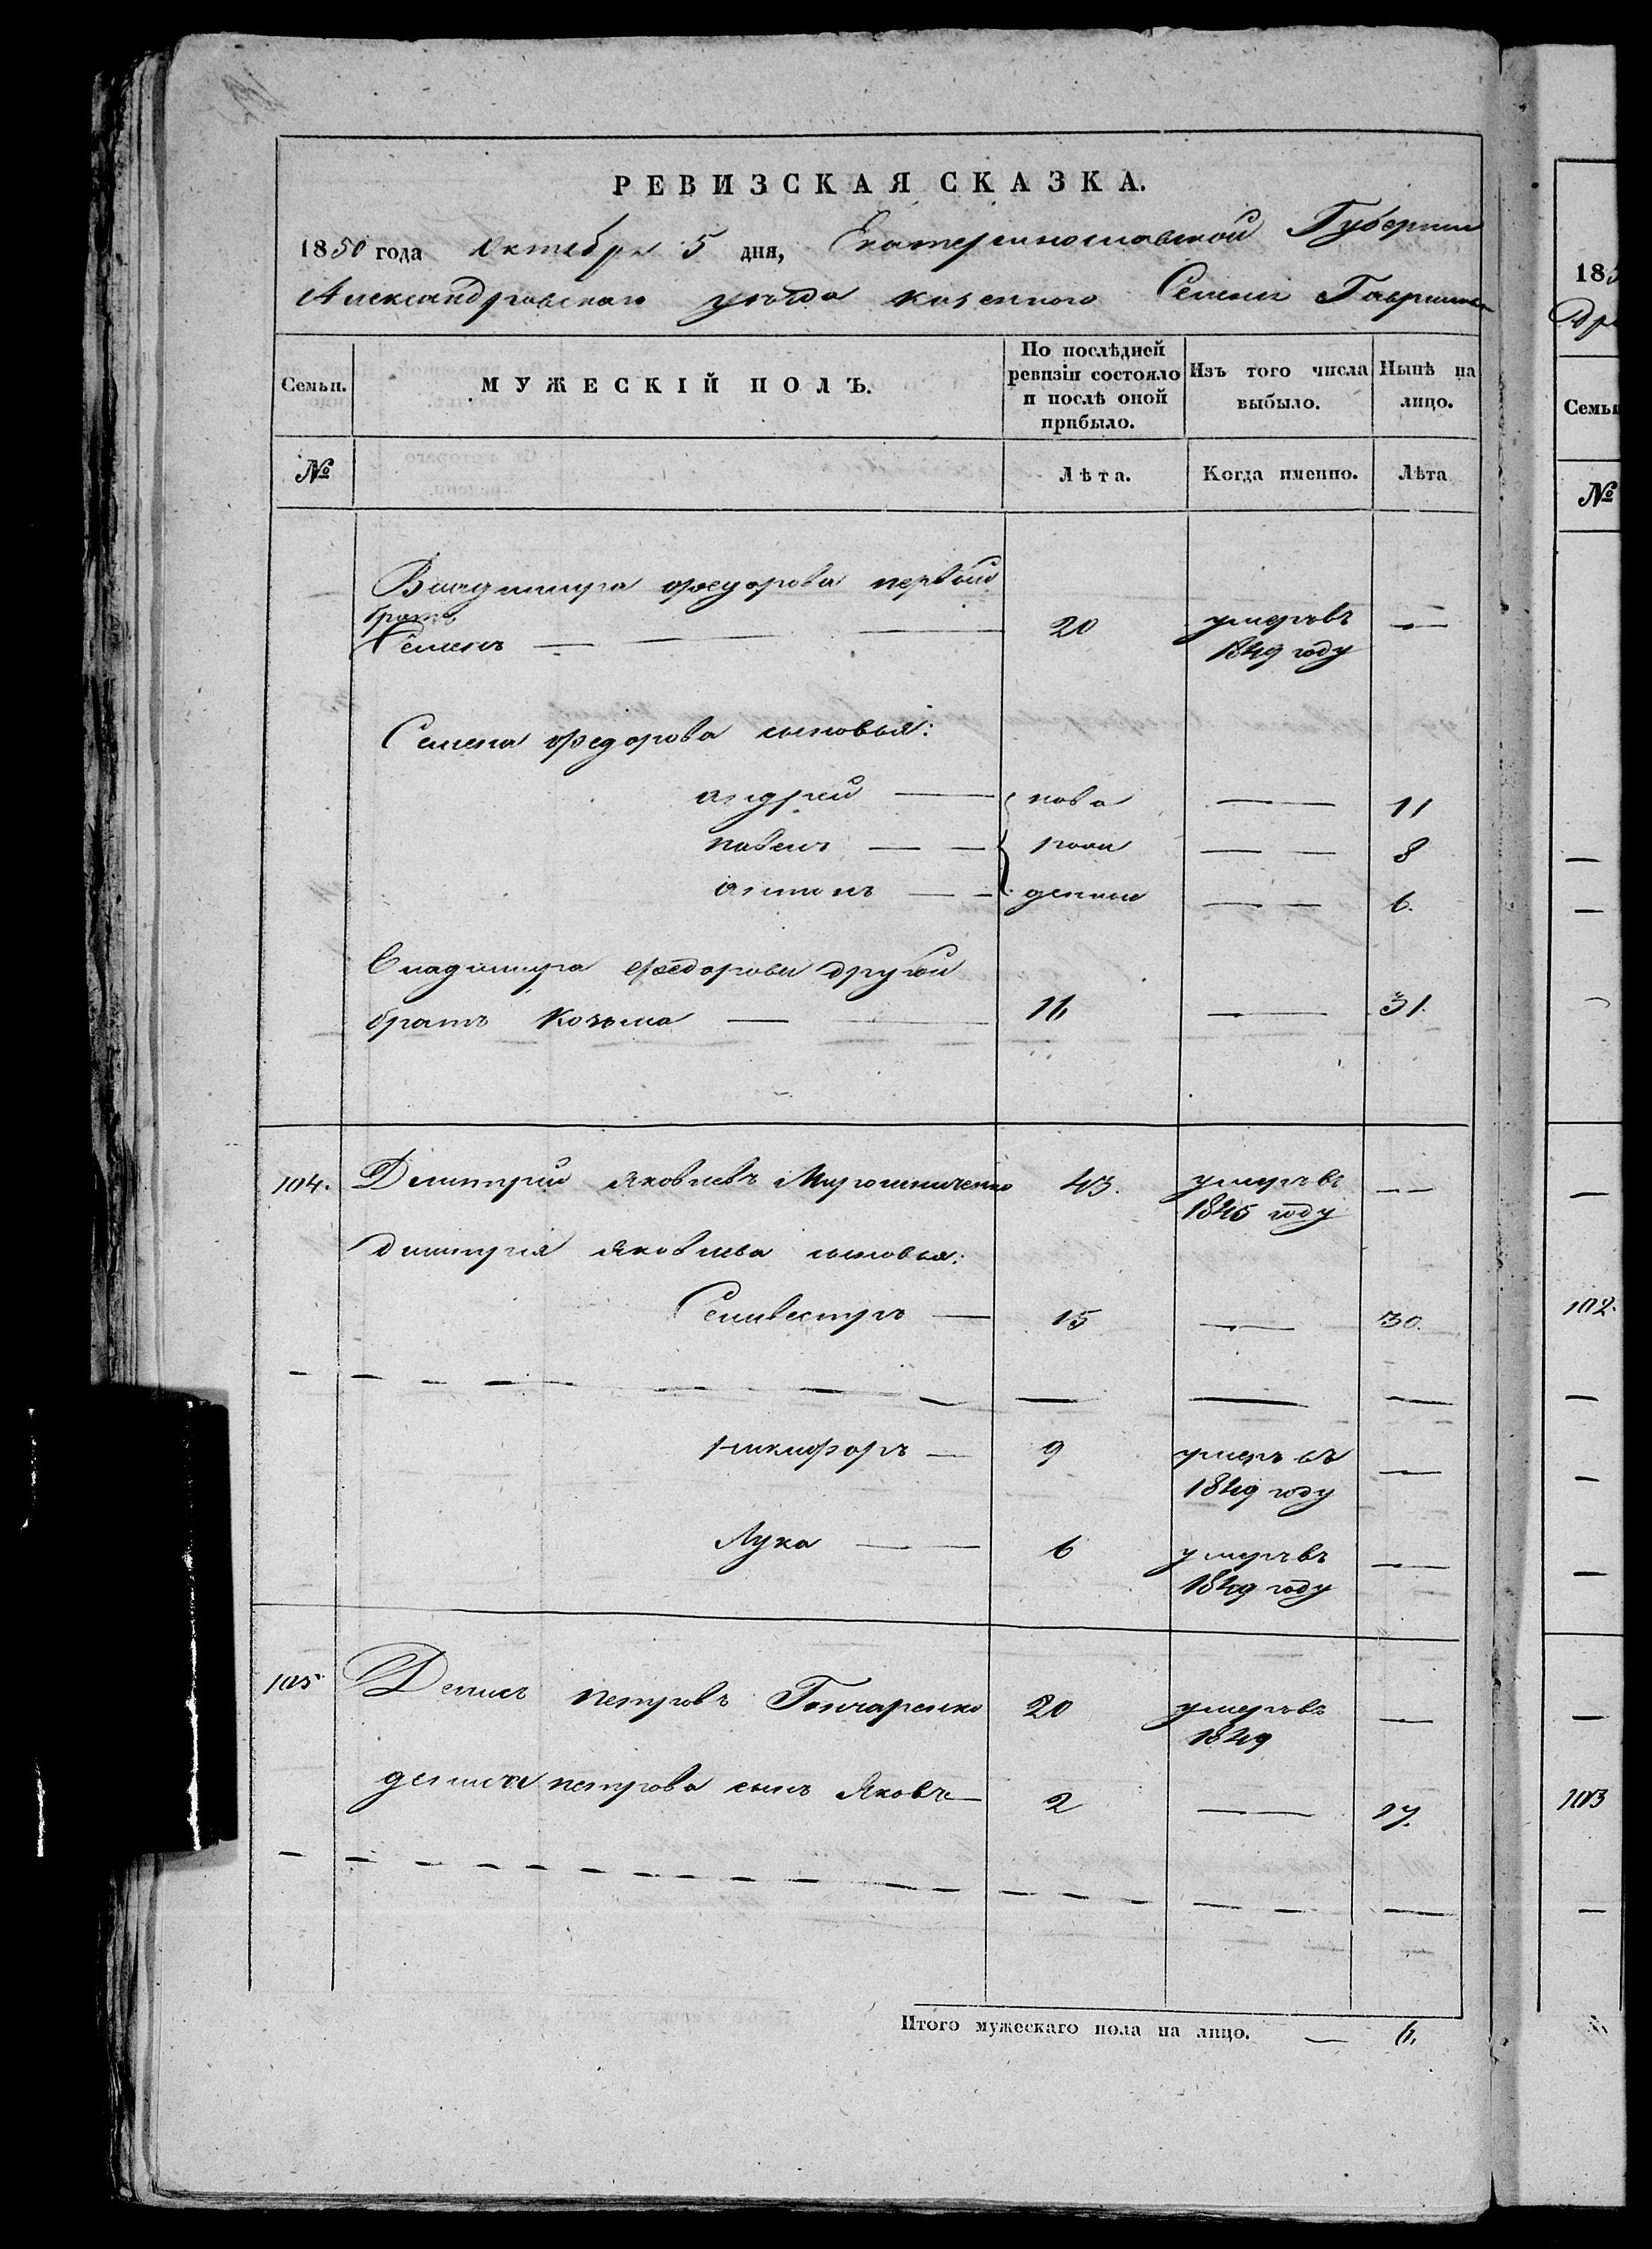 РЕВИЗСКАЯ СКАЗКА.
1850 года Октября 5 дня, Екатеринославской Губернии
Александровскаго уезда казенного Селени Гаврилов
Семьи. МУЖЕСКІЙ ПОЛЪ. По послѣдней ревизіи состояло и послѣ оной прибыло. Изъ того числа выбыло. Нынѣ на лицо.
№ Лѣта. Когда именно. Лѣта
Владимира федорова первый
братъ
Семенъ — 20 умеръ въ —
1849 году
Семена федорова сыновья:
андрей — нова — 11
павелъ — рож — 8
антонъ — денны — 6.
Владимира федорова другой
братъ Козьма — 16 — 31.
104. Дмитрий яковлевъ Мирошниченко 43. умеръ въ —
1845 году
дмитрия яковлева сыновья:
Селивестръ — 15 — 30.
никифоръ — 9 умеръ въ —
1849 году
Лука — 6 умеръ въ —
1849 году
105 Денисъ петровъ Гончаренко 20 умеръ въ —
1849
дениса петрова сынъ яковъ — 2 — 17.
Итого мужескаго пола на лицо. — 6,
185
Семьи
№
102.
103